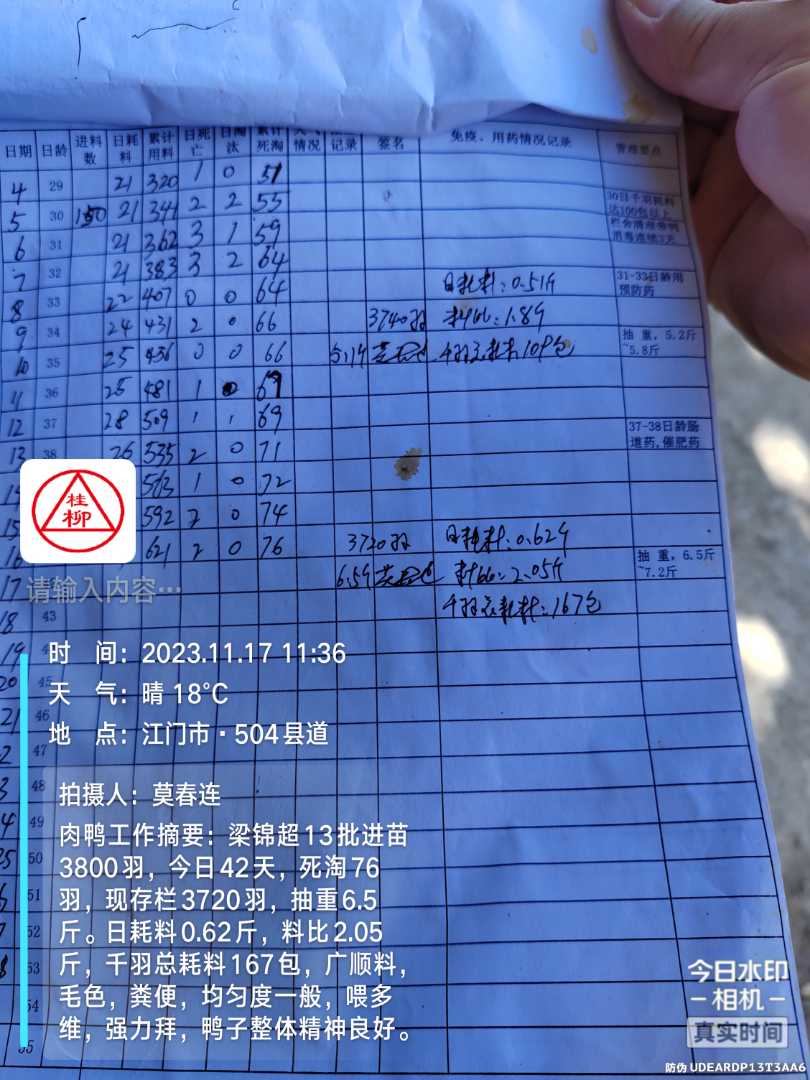 日期 日龄 进料数 日耗料 累计用料 日死亡 日淘汰 累计死淘 天气情况 记录 签名 免疫、用药情况记录 管理要点
4 29 21 320 1 0 51
5 30 150 21 341 2 2 55 30日千羽耗料达100包以上
6 31 21 362 3 1 59
7 32 21 383 3 2 64
8 33 22 407 0 0 64 日耗料:0.51斤 31-33日龄用预防药
9 34 24 431 2 0 66 3740羽 料比:1.8斤
10 35 25 456 0 0 66 千羽总耗料109包 抽重,5.2斤~5.8斤
11 36 25 481 1 0
12 37 28 509 1 1 69
13 38 26 535 2 0 71 37-38日龄肠道药,催肥药
563 1 0 72
15 592 2 0 74
16 621 2 0 76 3720羽 日耗料:0.62斤 抽重,6.5斤~7.2斤
17 6.5斤 料比:2.05斤
18 43 千羽总耗料:167包
19
20 45
21 46
47
48
49
50
51
52
53
54
桂柳
请输入内容…
时 间:2023.11.17 11:36
天 气:晴 18℃
地 点:江门市·504县道
拍摄人:莫春连
肉鸭工作摘要:梁锦超13批进苗
3800羽,今日42天,死淘76
羽,现存栏3720羽,抽重6.5
斤。日耗料0.62斤,料比2.05
斤,千羽总耗料167包,广顺料,
毛色,粪便,均匀度一般,喂多
维,强力拜,鸭子整体精神良好。
今日水印
-相机-
真实时间
防伪 UDEARDP13T3AA6